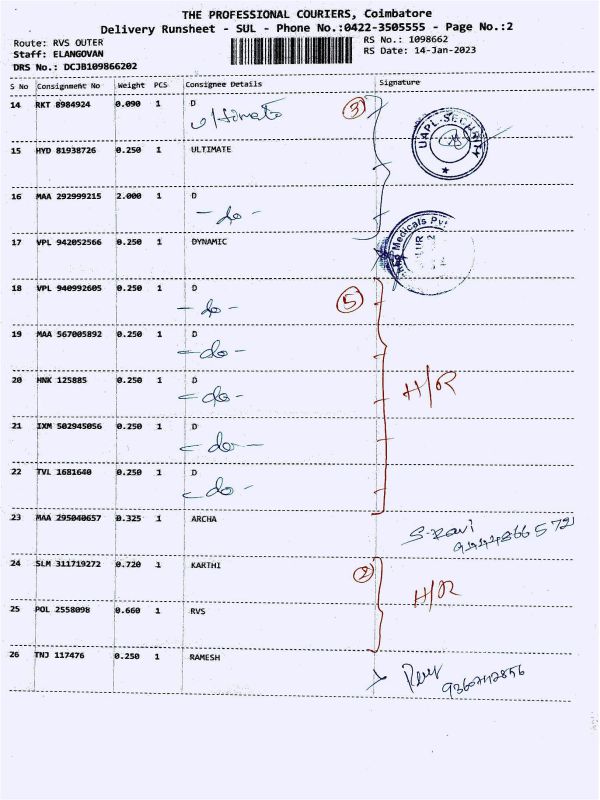 THE PROFESSIONAL COURIERS, Coimbatore
Delivery Runsheet - SUL - Phone No.:0422-3505555 - Page No.:2
Route: RVS OUTER
RS No.: 1098662
Staff: ELANGOVAN
RS Date: 14-Jan-2023
DRS No.: DCJB109866202
S No Consignment No Weight PCS Consignee Details Signature
14 RKT 8984924 0.090 1 D
ultimate
3
UAPL-SECURITY
15 HYD 81938726 0.250 1 ULTIMATE
16 MAA 292999215 2.000 1 D
- do -
Medicals Pvt
17 VPL 942052566 0.250 1 DYNAMIC
18 VPL 940992605 0.250 1 D
- do -
5
19 MAA 567005892 0.250 1 D
- do -
20 HNK 125885 0.250 1 D
- do -
H/R
21 IXM 502945056 0.250 1 D
- do -
22 TVL 1681640 0.250 1 D
- do -
23 MAA 295040657 0.325 1 ARCHA
S. Ravi
24 SLM 311719272 0.720 1 KARTHI
2
H/R
25 POL 2558098 0.660 1 RVS
26 TNJ 117476 0.250 1 RAMESH